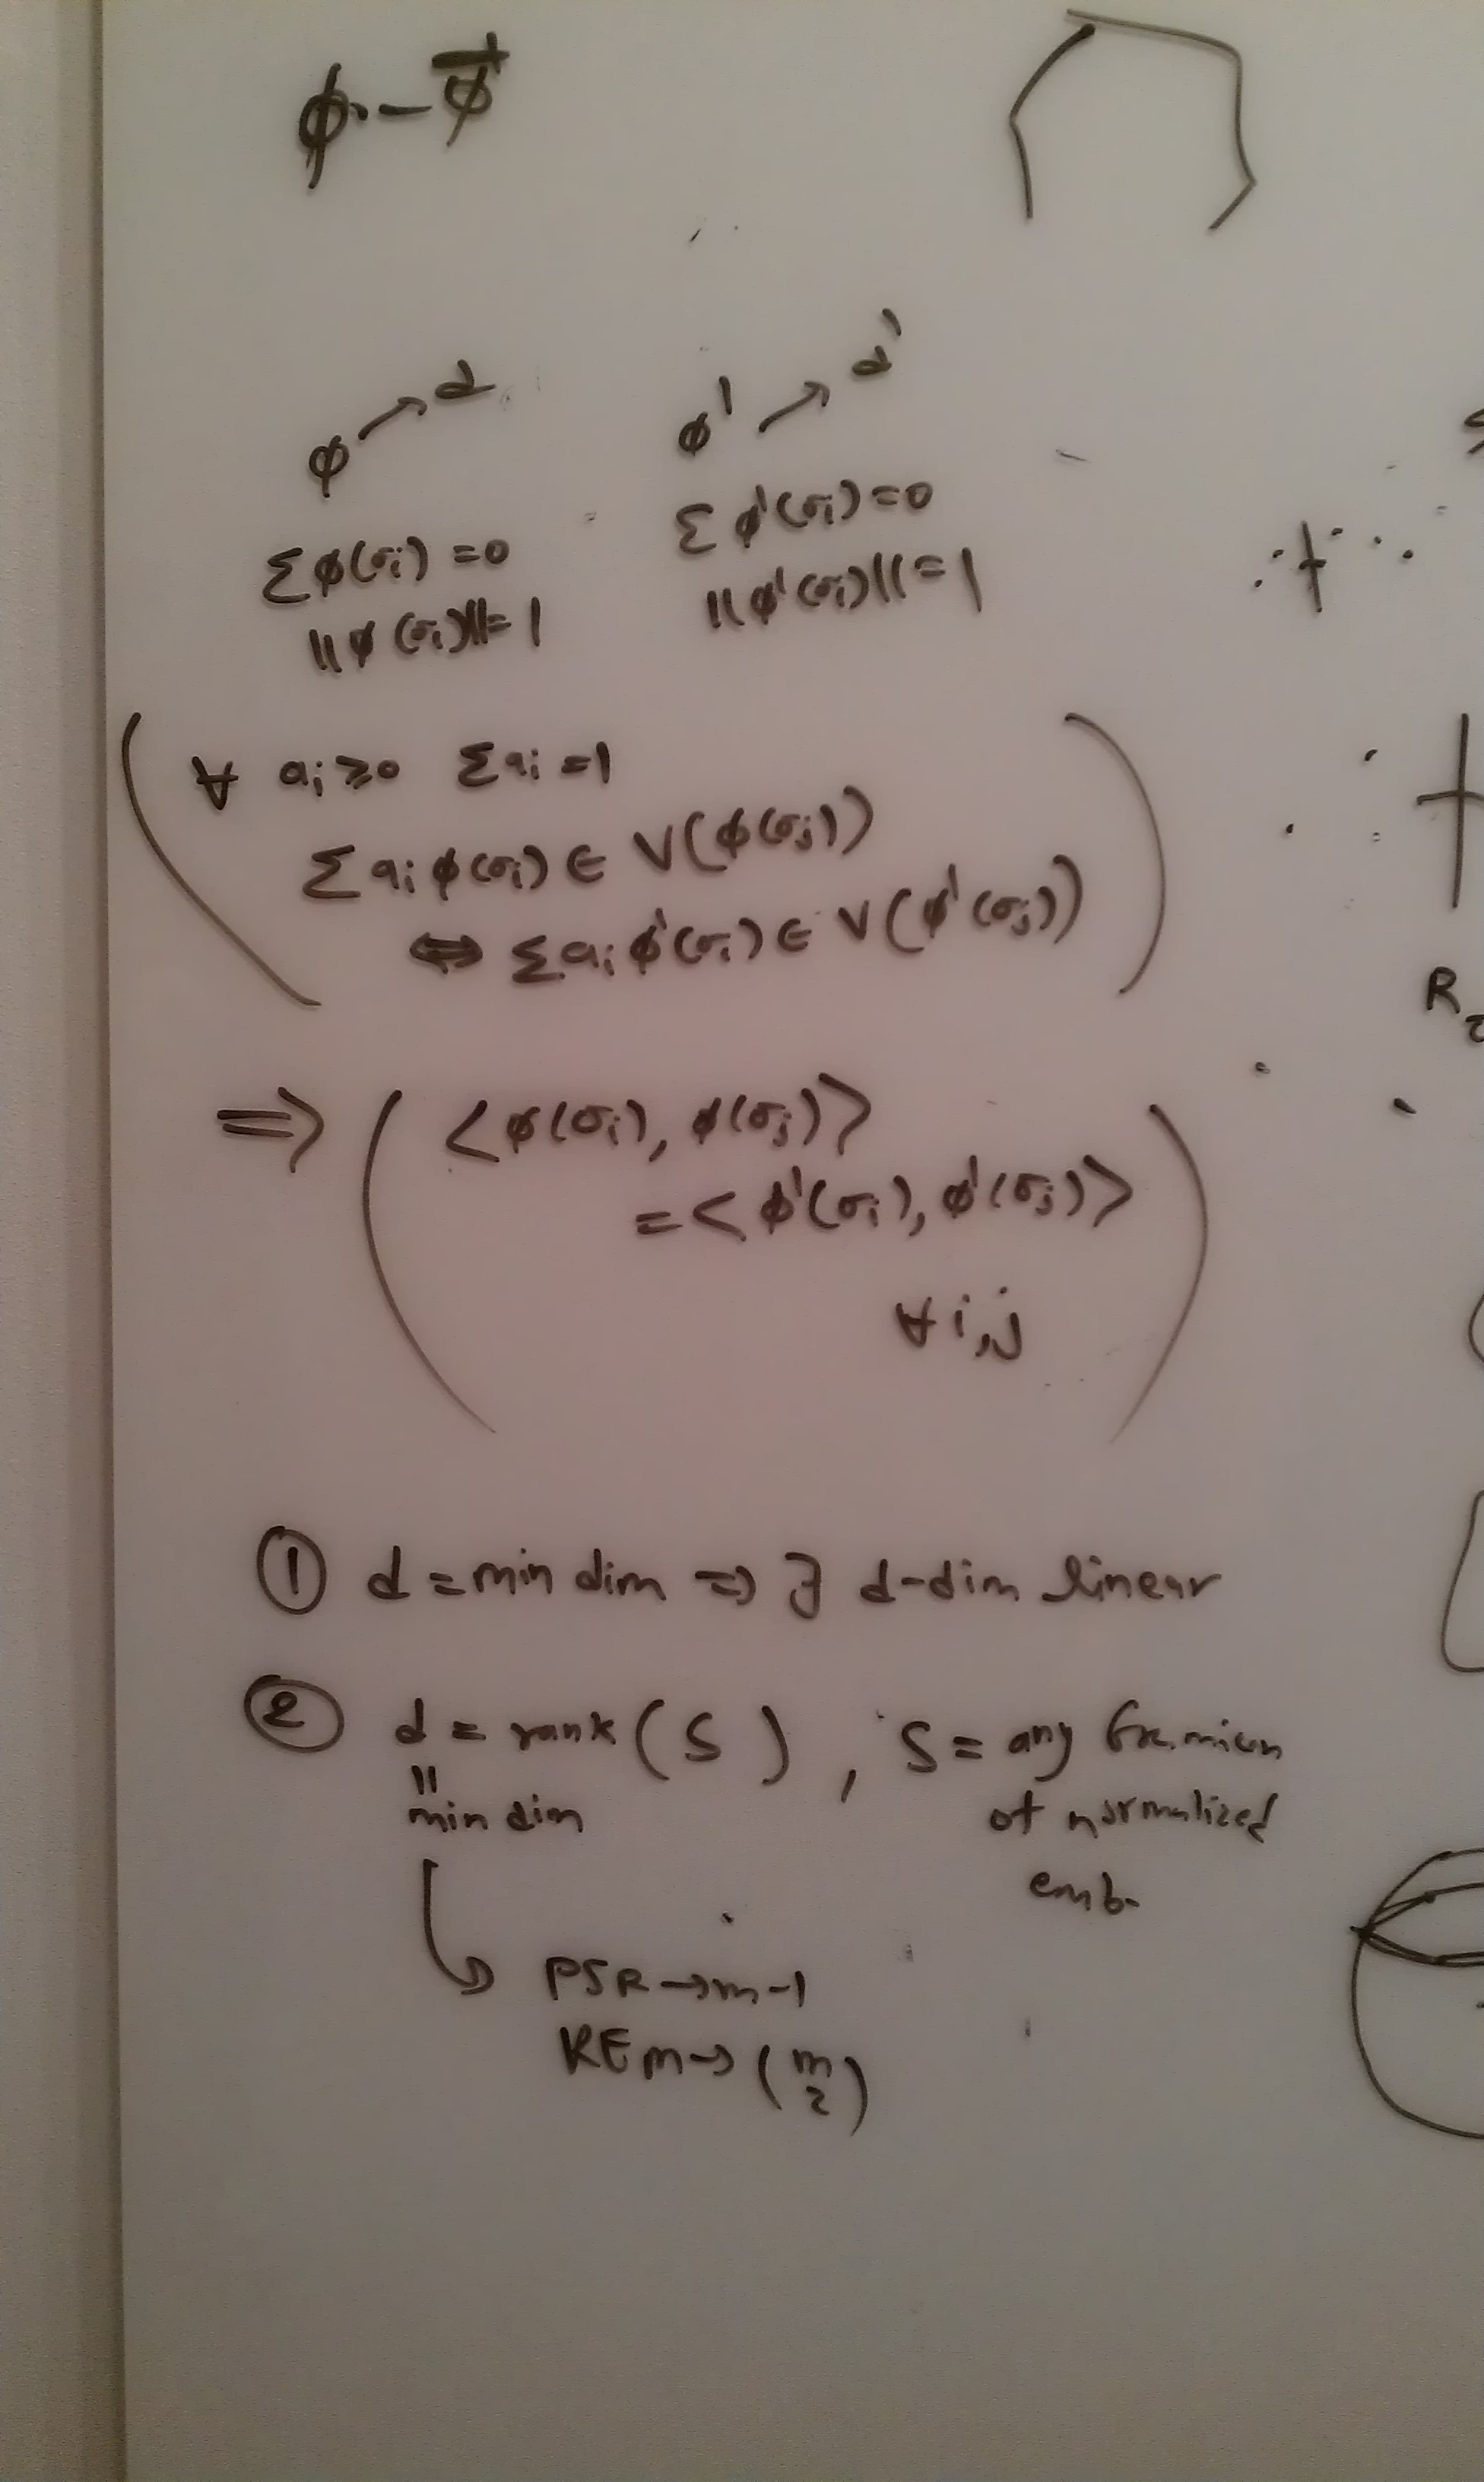 ϕ - ϕ̄'
ϕ → d   ϕ' → d'
Σϕ(σᵢ) = 0   Σϕ'(σᵢ) = 0
||ϕ(σᵢ)|| = 1   ||ϕ'(σᵢ)|| = 1
∀ aᵢ ≥ 0  Σaᵢ = 1
Σaᵢϕ(σᵢ) ∈ V(ϕ(σⱼ))
⇔ Σaᵢϕ'(σᵢ) ∈ V(ϕ'(σⱼ))
⇒ ( <ϕ(σᵢ), ϕ(σⱼ)>
= <ϕ'(σᵢ), ϕ'(σⱼ)>
∀ i,j )
① d = min dim ⇒ ∃ d-dim linear
② d = rank(S), S = any Gramian
|| min dim   of normalized
emb.
↳ PSR → m-1
KEM → (m 2)
R₂